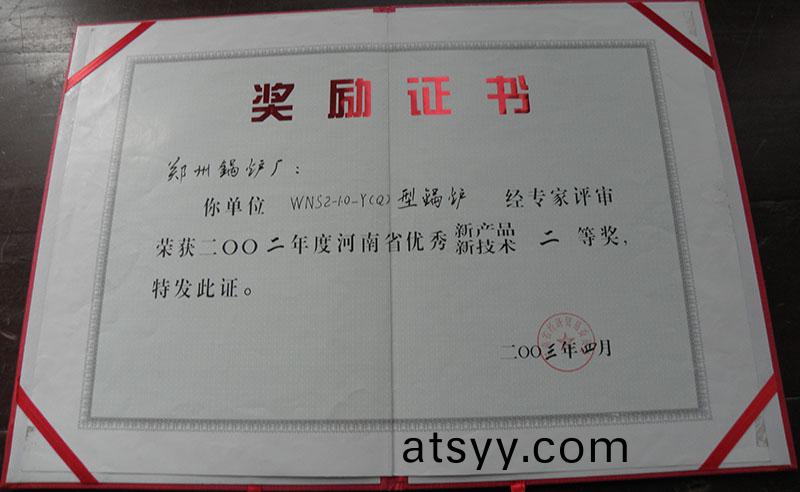 奖励证书
郑州锅炉厂：
你单位 WNS2-1.0-Y(Q)型锅炉 经专家评审
荣获二〇〇二年度河南省优秀新产品新技术 二 等奖，
特发此证。
二〇〇三年四月
atsyy.com